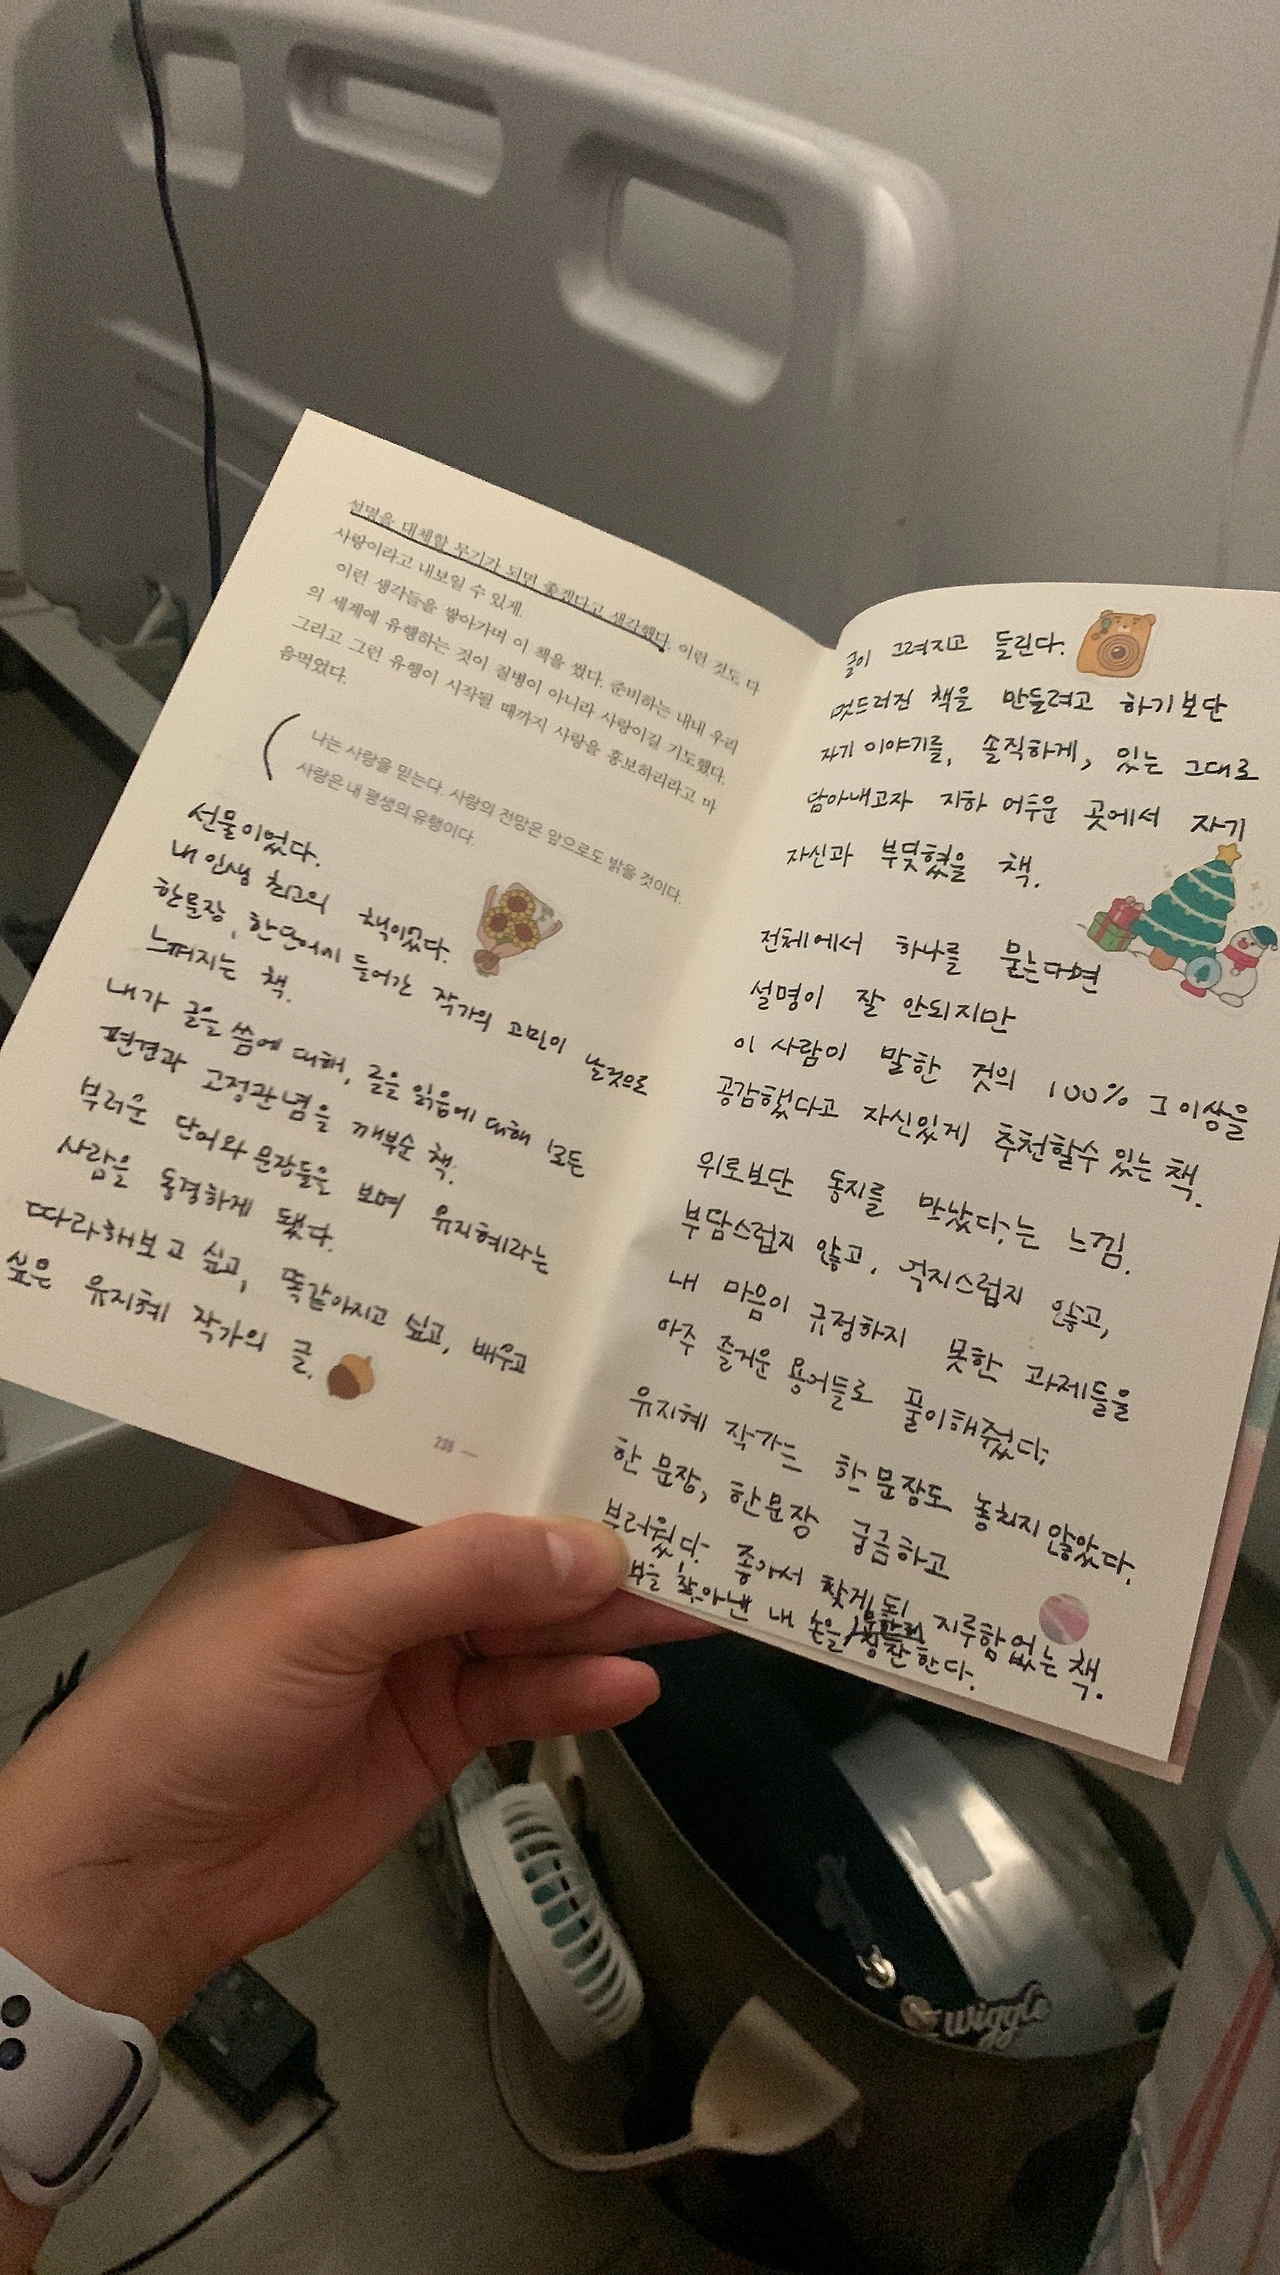 설명을 대체할 무기가 되면 좋겠다고 생각했다. 이런 것도 다
사랑이라고 내보일 수 있게.
이런 생각들을 쌓아가며 이 책을 썼다. 준비하는 내내 우리
의 세계에 유행하는 것이 질병이 아니라 사랑이길 기도했다.
그리고 그런 유행이 시작될 때까지 사랑을 홍보하리라고 마
음먹었다.
나는 사랑을 믿는다. 사랑의 전망은 앞으로도 밝을 것이다.
사랑은 내 평생의 유행이다.
선물이었다.
내 인생 최고의 책이었다.
한문장, 한단어에 들어간 작가의 고민이 날것으로
느껴지는 책.
내가 글을 씀에 대해, 글을 읽음에 대해 모든
편견과 고정관념을 깨부순 책.
부러운 단어와 문장들을 보며 유지혜라는
사람을 동경하게 됐다.
따라해보고 싶고, 똑같아지고 싶고, 배우고
싶은 유지혜 작가의 글.
238 —
글이 그려지고 들린다.
멋드러진 책을 만들려고 하기보단
자기 이야기를, 솔직하게, 있는 그대로
담아내고자 지하 어두운 곳에서 자기
자신과 부딫혔을 책.
전체에서 하나를 묻는다면
설명이 잘 안되지만
이 사람이 말한 것의 100% 그 이상을
공감했다고 자신있게 추천할수 있는 책.
위로보단 동지를 만났다;는 느낌.
부담스럽지 않고, 억지스럽지 않고,
내 마음이 규정하지 못한 과제들을
아주 즐거운 용어들로 풀이해줬다;
유지혜 작가는 한 문장도 놓치지 않았다.
한 문장, 한문장 궁금하고
부러웠다. 좋아서 찾게되 지루함없는 책.
찾아낸 내 손을 칭찬한다.
wiggle